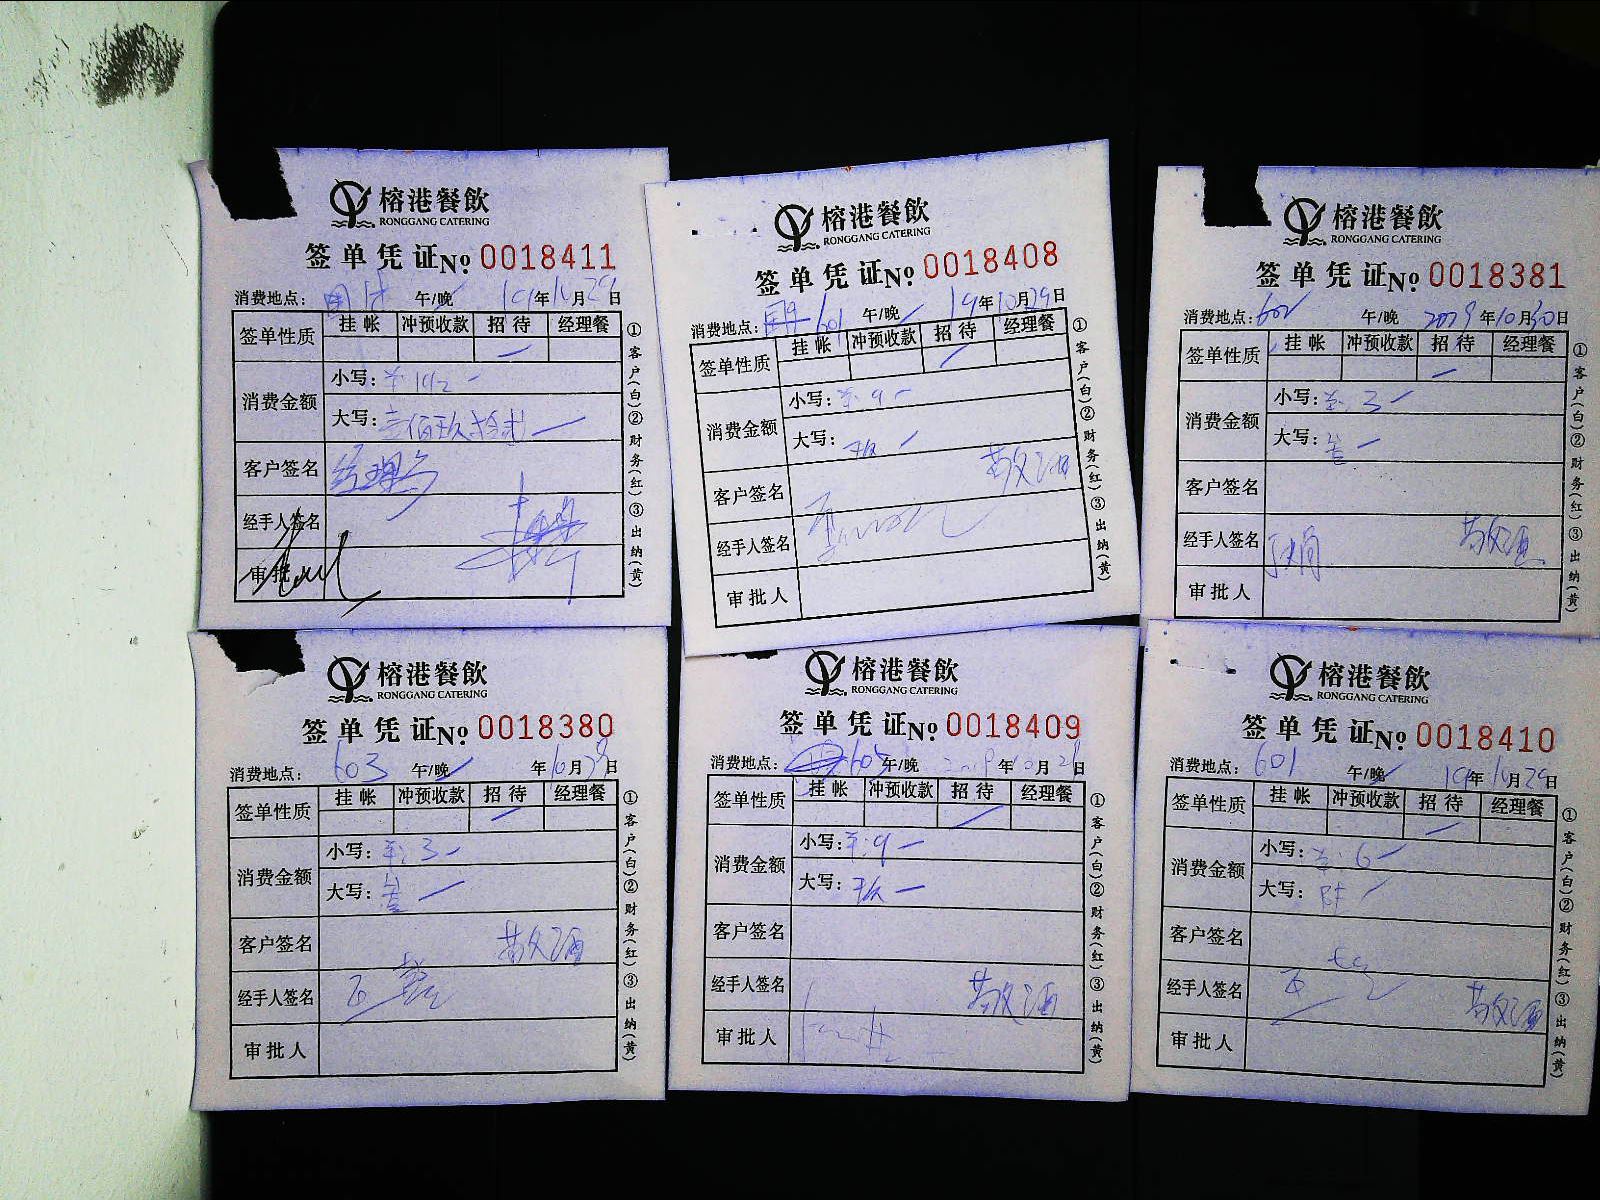 榕港餐飲
RONGGANG CATERING
签单凭证No 0018411
消费地点： 午/晚 19年10月29日
签单性质 挂帐 冲预收款 招待 经理餐
消费金额 小写： 192
大写：壹佰玖拾贰
客户签名 经理
经手人签名
审批
①客户(白)②财务(红)③出纳(黄)
榕港餐飲
RONGGANG CATERING
签单凭证No 0018408
消费地点： 601 午/晚 19年10月29日
签单性质 挂帐 冲预收款 招待 经理餐
消费金额 小写： 9
大写：玖
客户签名 敬酒
经手人签名
审批人
①客户(白)②财务(红)③出纳(黄)
榕港餐飲
RONGGANG CATERING
签单凭证No 0018381
消费地点：602 午/晚 2019年10月30日
签单性质 挂帐 冲预收款 招待 经理餐
消费金额 小写： 3
大写：叁
客户签名
经手人签名 敬酒
审批人
①客户(白)②财务(红)③出纳(黄)
榕港餐飲
RONGGANG CATERING
签单凭证No 0018380
消费地点：603 午/晚 年10月30日
签单性质 挂帐 冲预收款 招待 经理餐
消费金额 小写： 3
大写：叁
客户签名 敬酒
经手人签名
审批人
①客户(白)②财务(红)③出纳(黄)
榕港餐飲
RONGGANG CATERING
签单凭证No 0018409
消费地点： 603 午/晚 2019年10月 日
签单性质 挂帐 冲预收款 招待 经理餐
消费金额 小写： 9
大写：玖
客户签名
经手人签名 敬酒
审批人
①客户(白)②财务(红)③出纳(黄)
榕港餐飲
RONGGANG CATERING
签单凭证No 0018410
消费地点：601 午/晚 19年10月29日
签单性质 挂帐 冲预收款 招待 经理餐
消费金额 小写： 6
大写：陆
客户签名
经手人签名 敬酒
审批人
①客户(白)②财务(红)③出纳(黄)